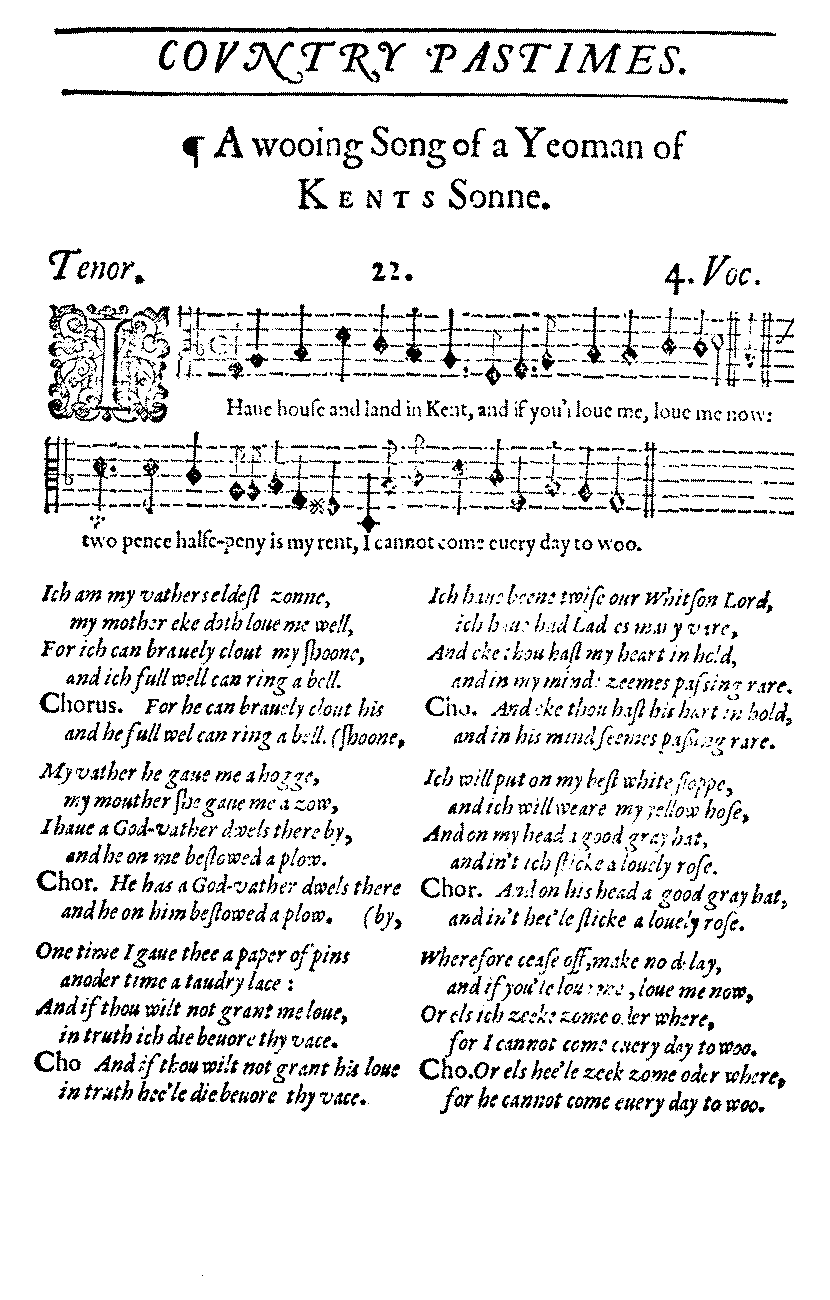 COVNTRY PASTIMES.
¶ A wooing Song of a Yeoman of
KENTS Sonne.
Tenor. 22. 4. Voc.
I Haue houſe and land in Kent, and if you'l loue me, loue me now:
two pence halfe-peny is my rent, I cannot come euery day to woo.
Ich am my vathers eldeſt zonne,
my mother eke doth loue me well,
For ich can brauely clout my ſhoone,
and ich full well can ring a bell.
Chorus. For he can brauely clout his
and he full wel can ring a bell. (ſhoone,
My vather he gaue me a hogge,
my mouther ſhe gaue me a zow,
I haue a God-vather dwels there by,
and he on me beſtowed a plow.
Chor. He has a God-vather dwels there
and he on him beſtowed a plow. (by,
One time I gaue thee a paper of pins
anoder time a taudry lace :
And if thou wilt not grant me loue,
in truth ich die beuore thy vace.
Cho And if thou wilt not grant his loue
in truth hee'le die beuore thy vace.
Ich haue beene twiſe our Whitſon Lord,
ich haue had Ladies many vare,
And eke thou haſt my heart in hold,
and in my minde zeemes paſsing rare.
Cho. And eke thou haſt his hart in hold,
and in his mind ſeemes paſsing rare.
Ich will put on my beſt white ſloppe,
and ich will weare my yellow hoſe,
And on my head a good gray hat,
and in't ich ſticke a louely roſe.
Chor. And on his head a good gray hat,
and in't hee'le ſticke a louely roſe.
Wherefore ceaſe off, make no delay,
and if you'le loue me, loue me now,
Or els ich zeeke zome oder where,
for I cannot come euery day to woo.
Cho. Or els hee'le zeek zome oder where,
for he cannot come euery day to woo.